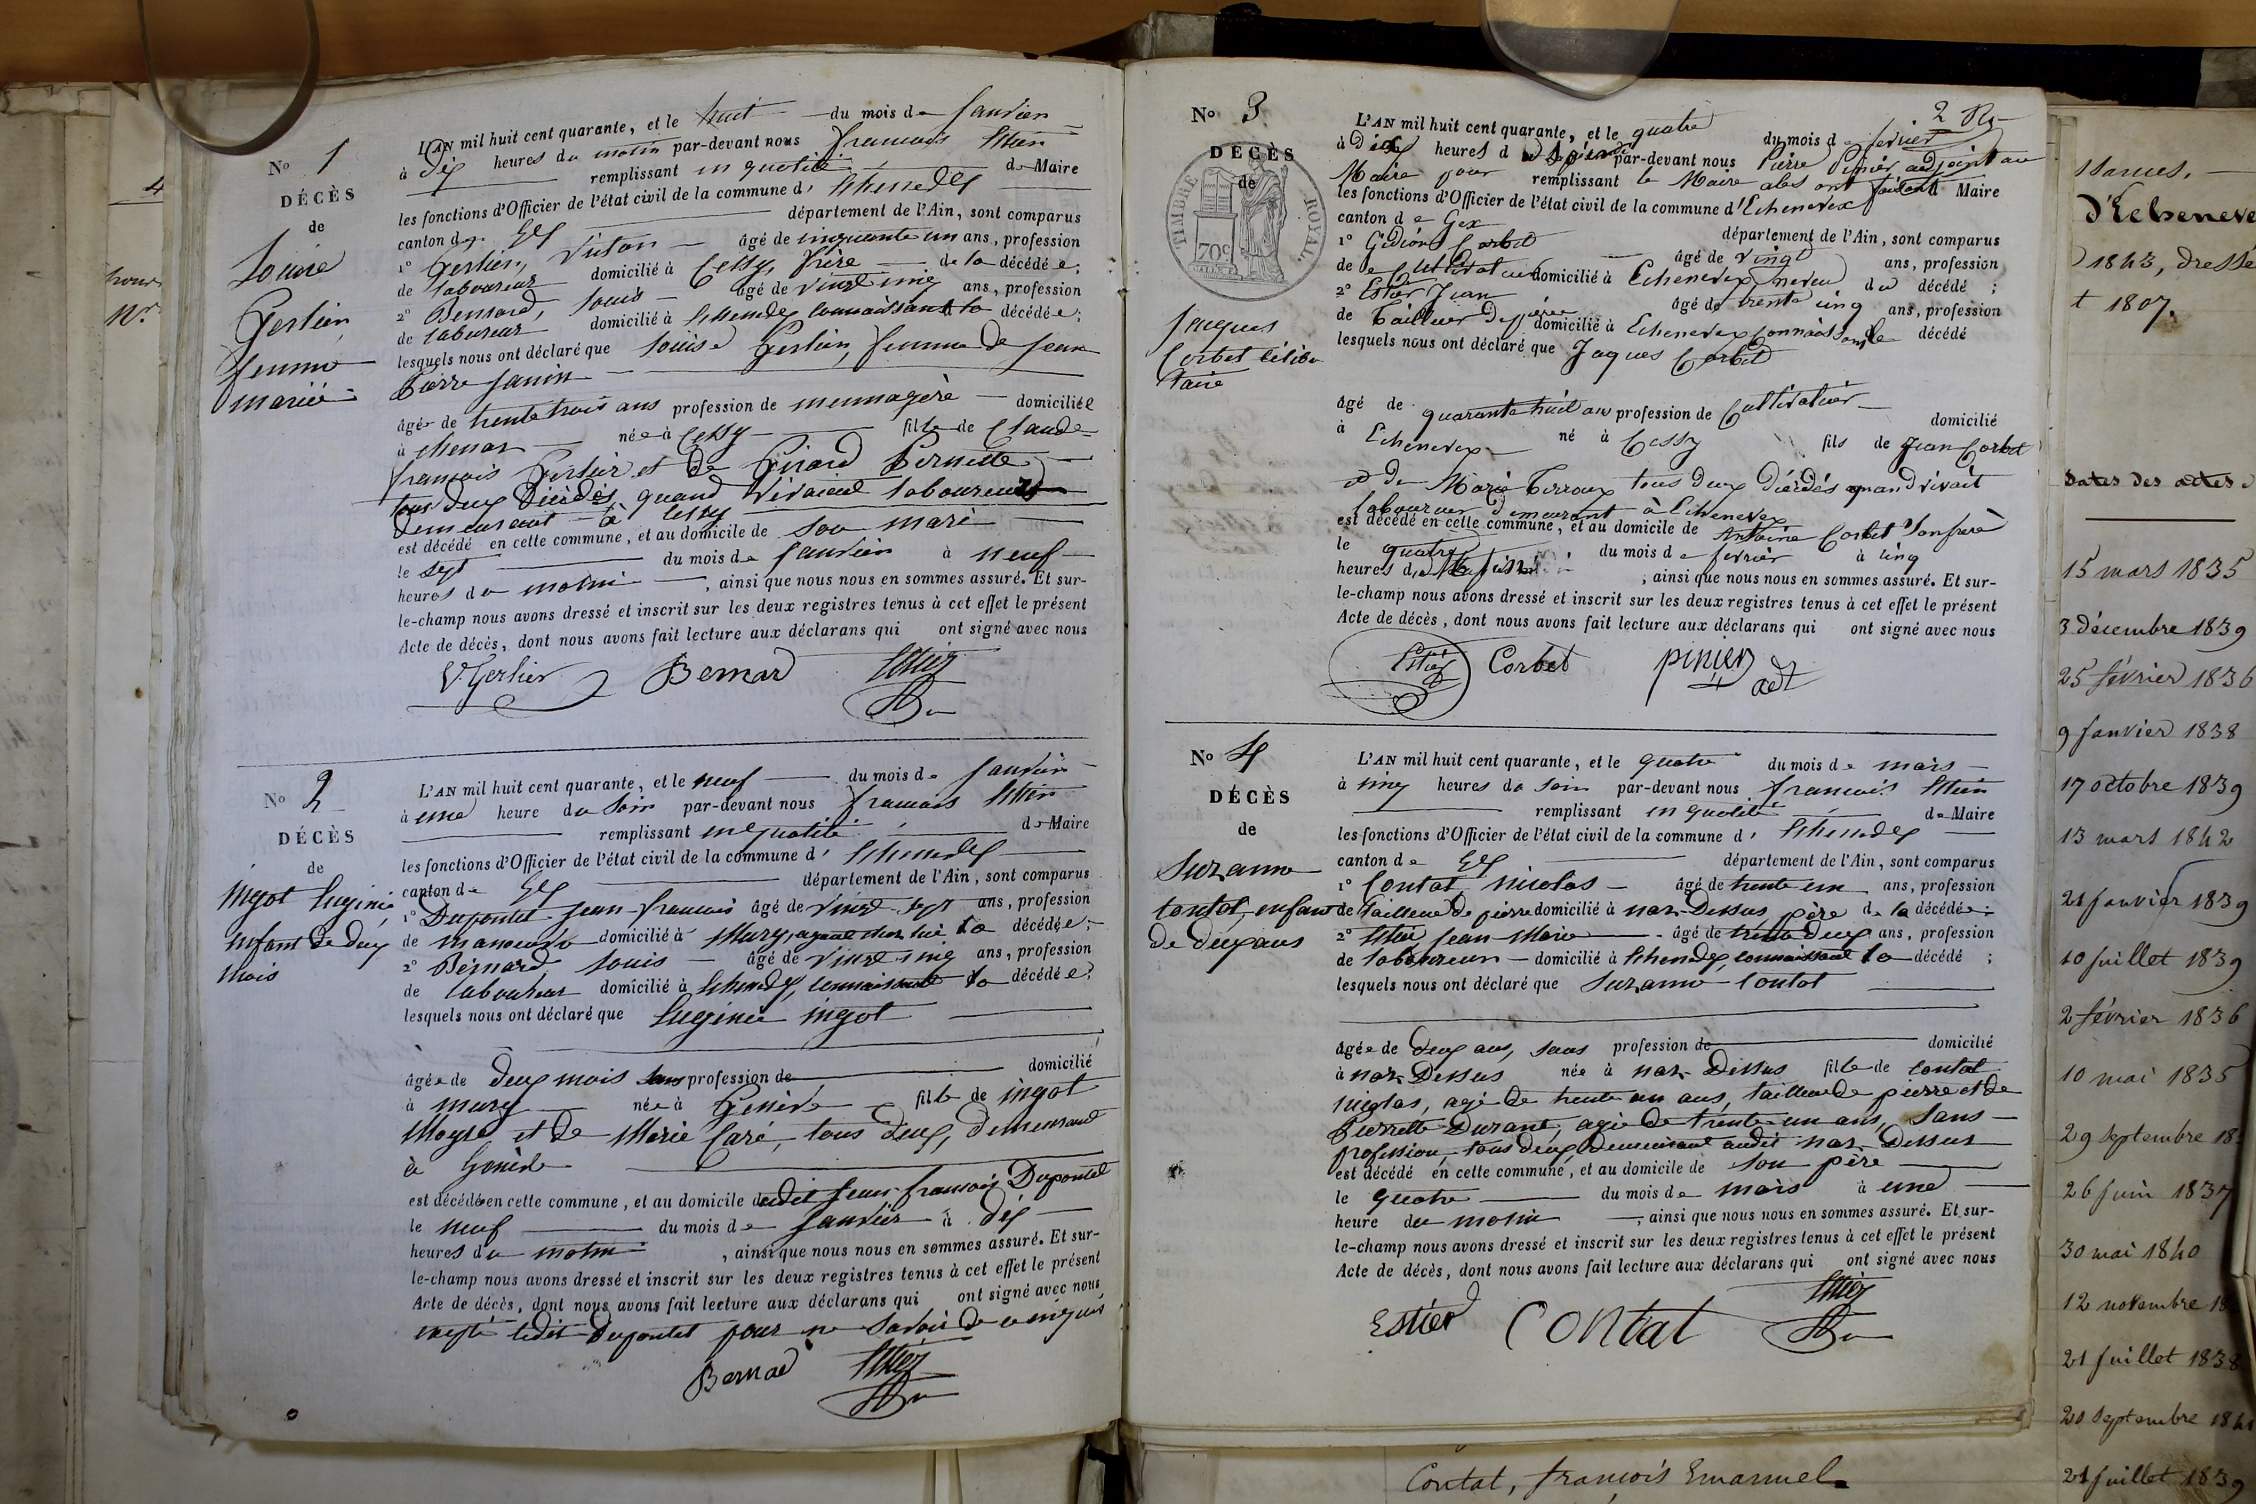 No 1
DÉCÈS
de
Louise
Gerlier,
femme
mariée
L'AN mil huit cent quarante, et le huit du mois de Janvier
à dix heures du matin par-devant nous francois Estier
remplissant en qualité de Maire
les fonctions d'Officier de l'état civil de la commune d' Echenevex
canton de Gex département de l'Ain, sont comparus
1° Gerlier, Victor âgé de cinquante un ans, profession
de laboureur domicilié à Cessy, frère de la décédée;
2° Bernard, Louis âgé de vingt cinq ans, profession
de laboureur domicilié à Echenevex connaissant la décédée;
lesquels nous ont déclaré que Louise Gerlier, femme de Jean
Pierre Janin
âgée de trente trois ans profession de mennagère domiciliée
à chenaz née à Cessy fille de Claude
francois Gerlier et de Girard Pernette
tous deux décédés quand vivaient laboureurs
demeurant à Cessy
est décédé en cette commune, et au domicile de son mari
le sept du mois de Janvier à neuf
heures du matin, ainsi que nous nous en sommes assuré. Et sur-
le-champ nous avons dressé et inscrit sur les deux registres tenus à cet effet le présent
Acte de décès, dont nous avons fait lecture aux déclarans qui ont signé avec nous
V. Gerlier Bernard Estier
No 2
DÉCÈS
de
Ingot Eugénie
enfant de deux
mois
L'AN mil huit cent quarante, et le neuf du mois de Janvier
à une heure du soir par-devant nous francois Estier
remplissant en qualité de Maire
les fonctions d'Officier de l'état civil de la commune d' Echenevex
canton de Gex département de l'Ain, sont comparus
1° Dupontet Jean-francois âgé de vingt-sept ans, profession
de manoeuvre domicilié à Mury, ayant chez lui la décédée;
2° Bernard Louis âgé de vingt cinq ans, profession
de laboureur domicilié à Echenevex, connaissant la décédée;
lesquels nous ont déclaré que Eugénie ingot
âgée de deux mois sans profession de domicilié
à mury née à Genève fille de ingot
Moyse et de Marie Caré, tous deux, demeurant
à Genève
est décédée en cette commune, et au domicile dudit Jean-francois Dupontet
le neuf du mois de Janvier à dix
heures du matin, ainsi que nous nous en sommes assuré. Et sur-
le-champ nous avons dressé et inscrit sur les deux registres tenus à cet effet le présent
Acte de décès, dont nous avons fait lecture aux déclarans qui ont signé avec nous
excepté ledit Dupontet pour ne savoir de ce enquis
Bernad Estier
2
No 3
DÉCÈS
de
TIMBRE ROYAL.
70c
Jacques
Corbet céliba
taire
L'AN mil huit cent quarante, et le quatre du mois de fevrier
à dix heures d par-devant nous Pierre Pinier adjoint au
Maire pour remplissant le Maire absent faisant Maire
les fonctions d'Officier de l'état civil de la commune d'Echenevex
canton de Gex
département de l'Ain, sont comparus
1° Gédéon Corbet âgé de vingt ans, profession
de Cultivateur domicilié à Echenevex neveu du décédé;
2° Estier Jean âgé de trente cinq ans, profession
de Tailleur de pierre domicilié à Echenevex connaissant le décédé
lesquels nous ont déclaré que Jaques Corbet
âgé de quarante huit ans profession de Cultivateur domicilié
à Echenevex né à Cessy fils de Jean Corbet
et de Marie Perroux tous deux décédés quand vivait
laboureur demeurant à Echenevex
est décédé en cette commune, et au domicile de Antoine Corbet son frère
le quatre du mois de fevrier à cinq
heures du matin, ainsi que nous nous en sommes assuré. Et sur-
le-champ nous avons dressé et inscrit sur les deux registres tenus à cet effet le présent
Acte de décès, dont nous avons fait lecture aux déclarans qui ont signé avec nous
Estier Corbet pinier adt
No 4
DÉCÈS
de
Suzanne
Contat, enfant
de deux ans
L'AN mil huit cent quarante, et le quatre du mois de mars
à cinq heures du soir par-devant nous francois Estier
remplissant en qualité de Maire
les fonctions d'Officier de l'état civil de la commune d' Echenevex
canton de Gex département de l'Ain, sont comparus
1° Contat, nicolas âgé de trente un ans, profession
de tailleur de pierre domicilié à naz-Dessus, père de la décédée;
2° Estier Jean Marie âgé de trente deux ans, profession
de laboureur domicilié à Echenevex, connaissant la décédé;
lesquels nous ont déclaré que Suzanne Contat
âgée de deux ans, sans profession de domicilié
à naz-Dessus née à naz-Dessus fille de Contat
nicolas, agé de trente un ans, tailleur de pierre et de
Pierrette Durant, agée de trente-un ans, sans
profession, tous deux demeurant audit naz-Dessus
est décédé en cette commune, et au domicile de son père
le quatre du mois de mars à une
heure du matin, ainsi que nous nous en sommes assuré. Et sur-
le-champ nous avons dressé et inscrit sur les deux registres tenus à cet effet le présent
Acte de décès, dont nous avons fait lecture aux déclarans qui ont signé avec nous
Estier Contat Estier
Contat, françois Emanuel.
d'Echeneve
1843, dressé
t 1807.
Dates des actes d
15 mars 1835
3 décembre 1839
25 février 1836
9 janvier 1838
17 octobre 1839
13 mars 1842
21 janvier 1839
10 juillet 1839
2 février 1836
10 mai 1835
29 septembre 18
26 juin 1837
30 mai 1840
12 novembre 18
21 juillet 1838
20 septembre 184
21 juillet 1839